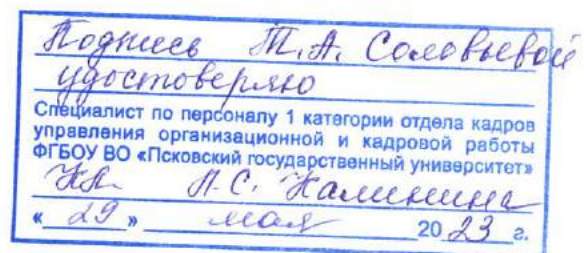 Подпись Т.А. Соловьевой
удостоверяю
Специалист по персоналу 1 категории отдела кадров
управления организационной и кадровой работы
ФГБОУ ВО «Псковский государственный университет»
Л.С. Калинина
« 29 » мая 20 23 г.